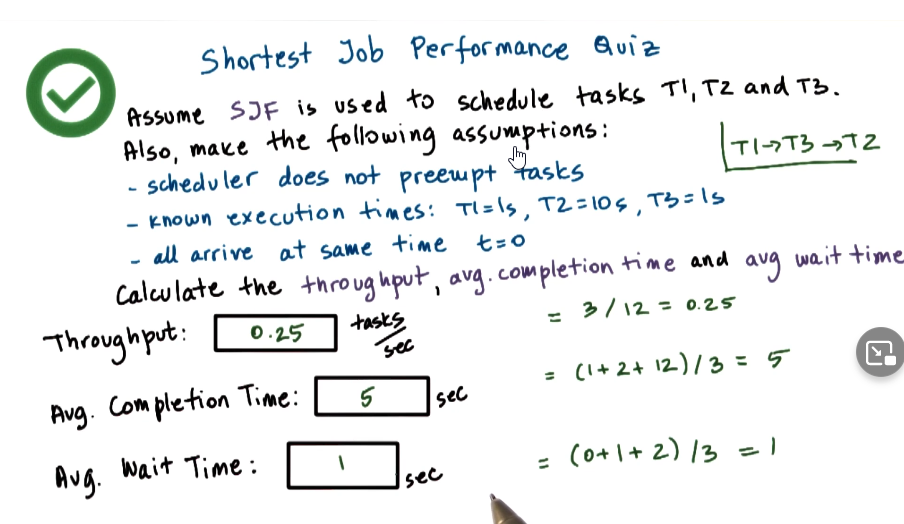 Shortest Job Performance Quiz
Assume SJF is used to schedule tasks T1, T2 and T3.
Also, make the following assumptions:
- scheduler does not preempt tasks
- known execution times: T1=1s, T2=10s, T3=1s
- all arrive at same time t=0
T1→T3→T2
Calculate the throughput, avg. completion time and avg wait time
Throughput: 0.25 tasks/sec
= 3/12 = 0.25
Avg. Completion Time: 5 sec
= (1+2+12)/3 = 5
Avg. Wait Time: 1 sec
= (0+1+2)/3 = 1